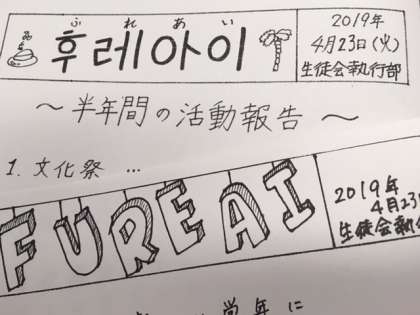 ふれあい
후레아이
2019年
4月23日(火)
生徒会執行部
～半年間の活動報告～
1. 文化祭 …
FUREAI
2019年
4月23
生徒会執行